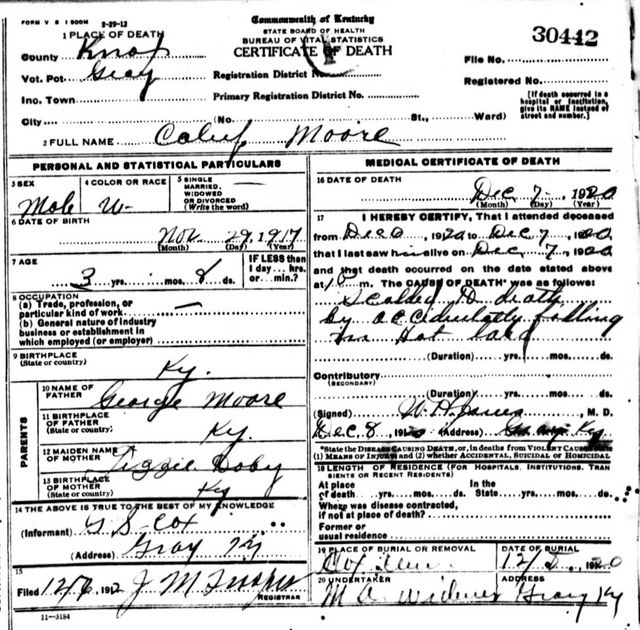 FORM V S 1 500M 2-29-12
Commonwealth of Kentucky
STATE BOARD OF HEALTH
BUREAU OF VITAL STATISTICS
CERTIFICATE OF DEATH
30442
1 PLACE OF DEATH
County Knox
Vot. Pct Gray
Inc. Town
City (No. St., Ward)
Registration District No.
Primary Registration District No.
File No.
Registered No.
[If death occurred in a hospital or institution, give its NAME instead of street and number.]
2 FULL NAME Moore
PERSONAL AND STATISTICAL PARTICULARS
3 SEX Male
4 COLOR OR RACE W-
5 SINGLE, MARRIED, WIDOWED OR DIVORCED (Write the word) —
6 DATE OF BIRTH
Nov. 29, 1917
(Month) (Day) (Year)
7 AGE
3 yrs. mos. 8 ds.
IF LESS than 1 day... hrs. or... min.?
8 OCCUPATION
(a) Trade, profession, or particular kind of work. —
(b) General nature of industry business or establishment in which employed (or employer)
9 BIRTHPLACE
(State or country) Ky.
PARENTS
10 NAME OF FATHER George Moore
11 BIRTHPLACE OF FATHER
(State or country) Ky.
12 MAIDEN NAME OF MOTHER
13 BIRTHPLACE OF MOTHER
(State or country) Ky
14 THE ABOVE IS TRUE TO THE BEST OF MY KNOWLEDGE
(Informant) Cox
(Address) Gray Ky
15
Filed 191 J M
REGISTRAR
11-3184
MEDICAL CERTIFICATE OF DEATH
16 DATE OF DEATH
Dec 7- 1920
(Month) (Day) (Year)
17 I HEREBY CERTIFY, That I attended deceased
from Dec 1920 to Dec 7 1920
that I last saw him alive on Dec 7, 1920
and that death occurred on the date stated above
at m. The CAUSE OF DEATH* was as follows:
Scalded to death
by accidently falling
in Hot
(Duration) yrs. mos. ds.
Contributory
(SECONDARY)
(Duration) yrs. mos. ds.
(Signed) W. H. M. D.
Dec, 8, 1920 (Address) Ky
*State the DISEASE CAUSING DEATH, or, in deaths from VIOLENT CAUSES (1) MEANS OF INJURY; and (2) whether ACCIDENTAL, SUICIDAL OR HOMICIDAL
18 LENGTH OF RESIDENCE (FOR HOSPITALS, INSTITUTIONS, TRANSIENTS OR RECENT RESIDENTS)
At place of death yrs. mos. ds. In the State yrs. mos. ds.
Where was disease contracted, if not at place of death?
Former or usual residence
19 PLACE OF BURIAL OR REMOVAL
DATE OF BURIAL
12/8, 1920
20 UNDERTAKER
ADDRESS
Gray Ky